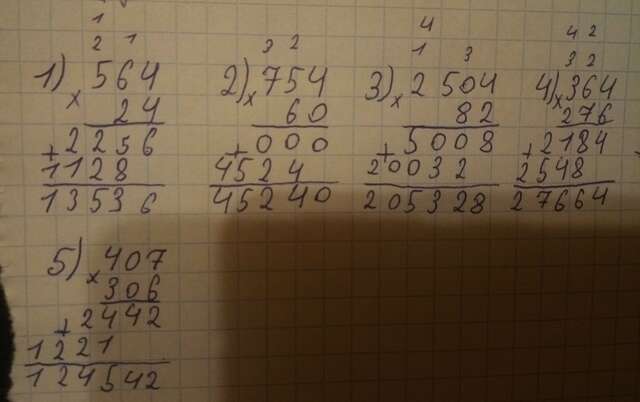 1
2 1
1) 564
×
24
+ 2256
1128
13536
3 2
2) 754
×
60
+ 000
4524
45240
4
1 3
3) 2504
×
82
+ 5008
20032
205328
4 2
3 2
4) 364
×
276
+ 2184
2548
27664
5) 407
×
306
+ 2442
1221
124542